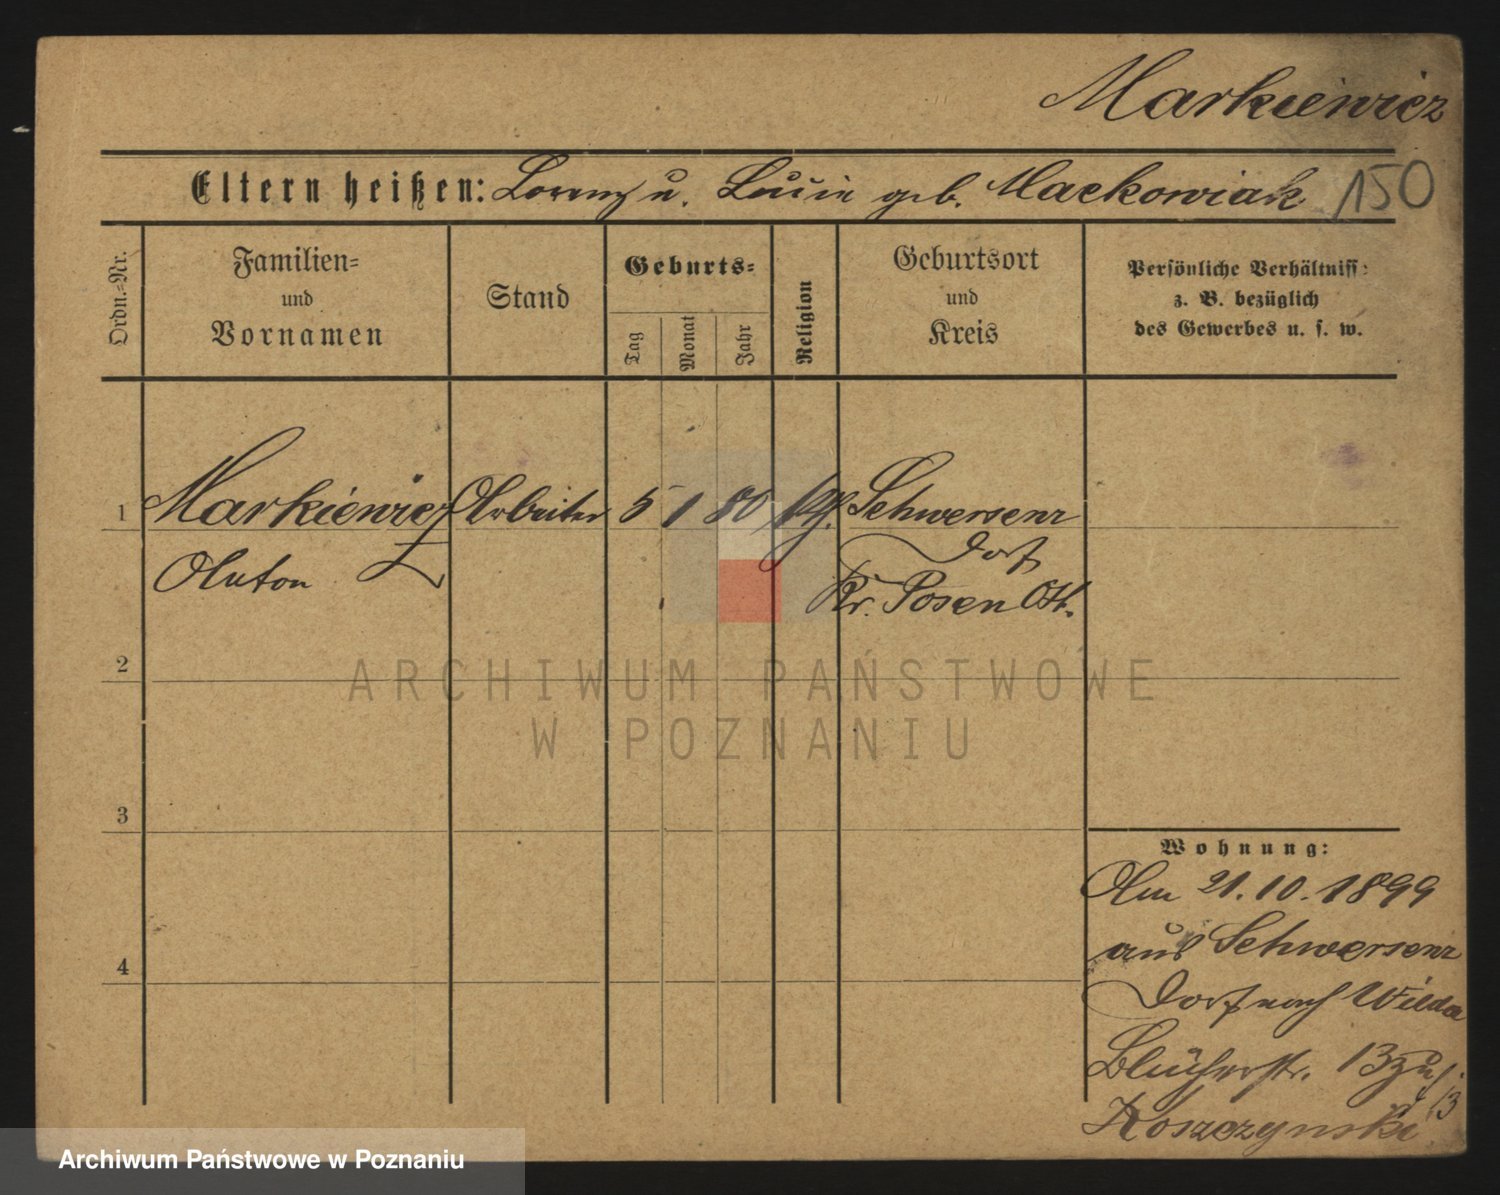 Markiewicz
Eltern heißen: Lorenz u. Luise geb. Mackowiak 150
Ordn.-Nr.
Familien-
und
Vornamen
Stand
Geburts-
Tag
Monat
Jahr
Religion
Geburtsort
und
Kreis
Persönliche Verhältniss:
z. B. bezüglich
des Gewerbes u. s. w.
1 Markiewicz Arbeiter 5 1 80 kth. Schwersenz
Dorf
Anton Kr. Posen Ost.
2
ARCHIWUM PAŃSTWOWE
W POZNANIU
3
Wohnung:
Am 21.10.1899
aus Schwersenz
4
Dorf nach Wilda
Blücherstr. 13 zu
Koszczynski
Archiwum Państwowe w Poznaniu